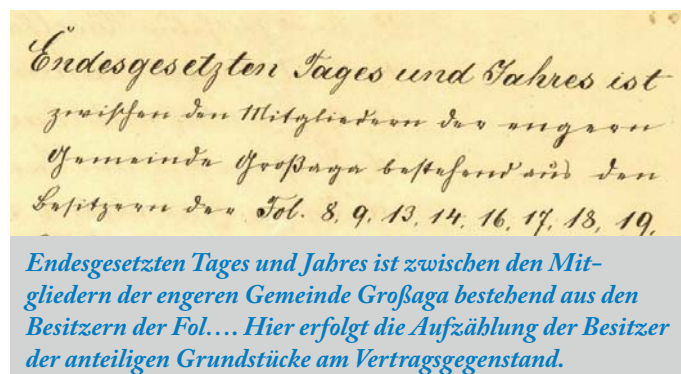 Endesgesetzten Tages und Jahres ist
zwischen den Mitgliedern der engern
Gemeinde Großaga bestehend aus den
Besitzern der Fol. 8, 9, 13, 14, 16, 17, 18, 19,
Endesgesetzten Tages und Jahres ist zwischen den Mit-
gliedern der engeren Gemeinde Großaga bestehend aus den
Besitzern der Fol…. Hier erfolgt die Aufzählung der Besitzer
der anteiligen Grundstücke am Vertragsgegenstand.